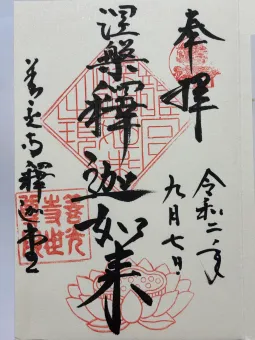 奉拝
令和二年
九月七日
涅槃釋迦如来
善光寺釋迦堂